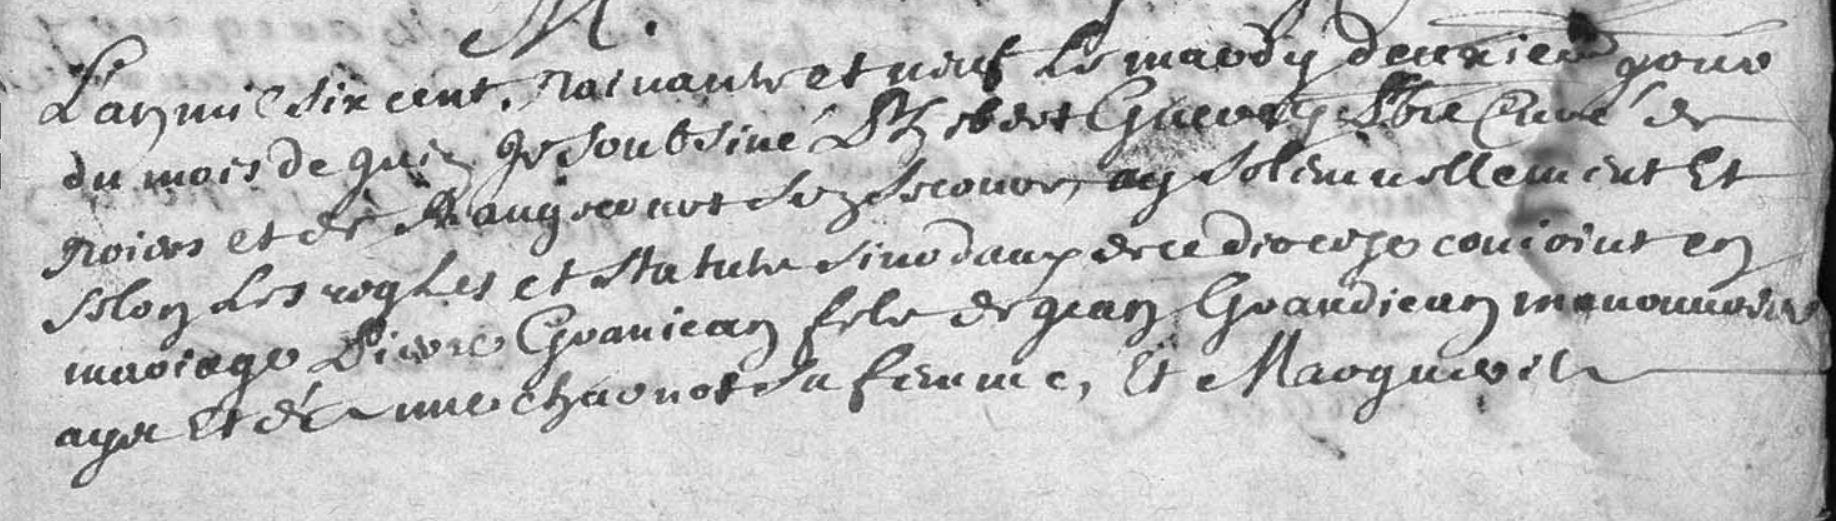 M.
L'an mil six cent nainante et neuf le mardy deuxiem jour
du mois de juin je soubsiné Robert Guerry Pbre Curé de
Noirs et de son secour ay solemnellement Et
selon les regles et statuts sinodaux de ce diocese conjoint en
mariage Pierre Granjean fils de jean Grandjean manouvrier
aye Et d'Anne charnot sa femme, Et Marguerite